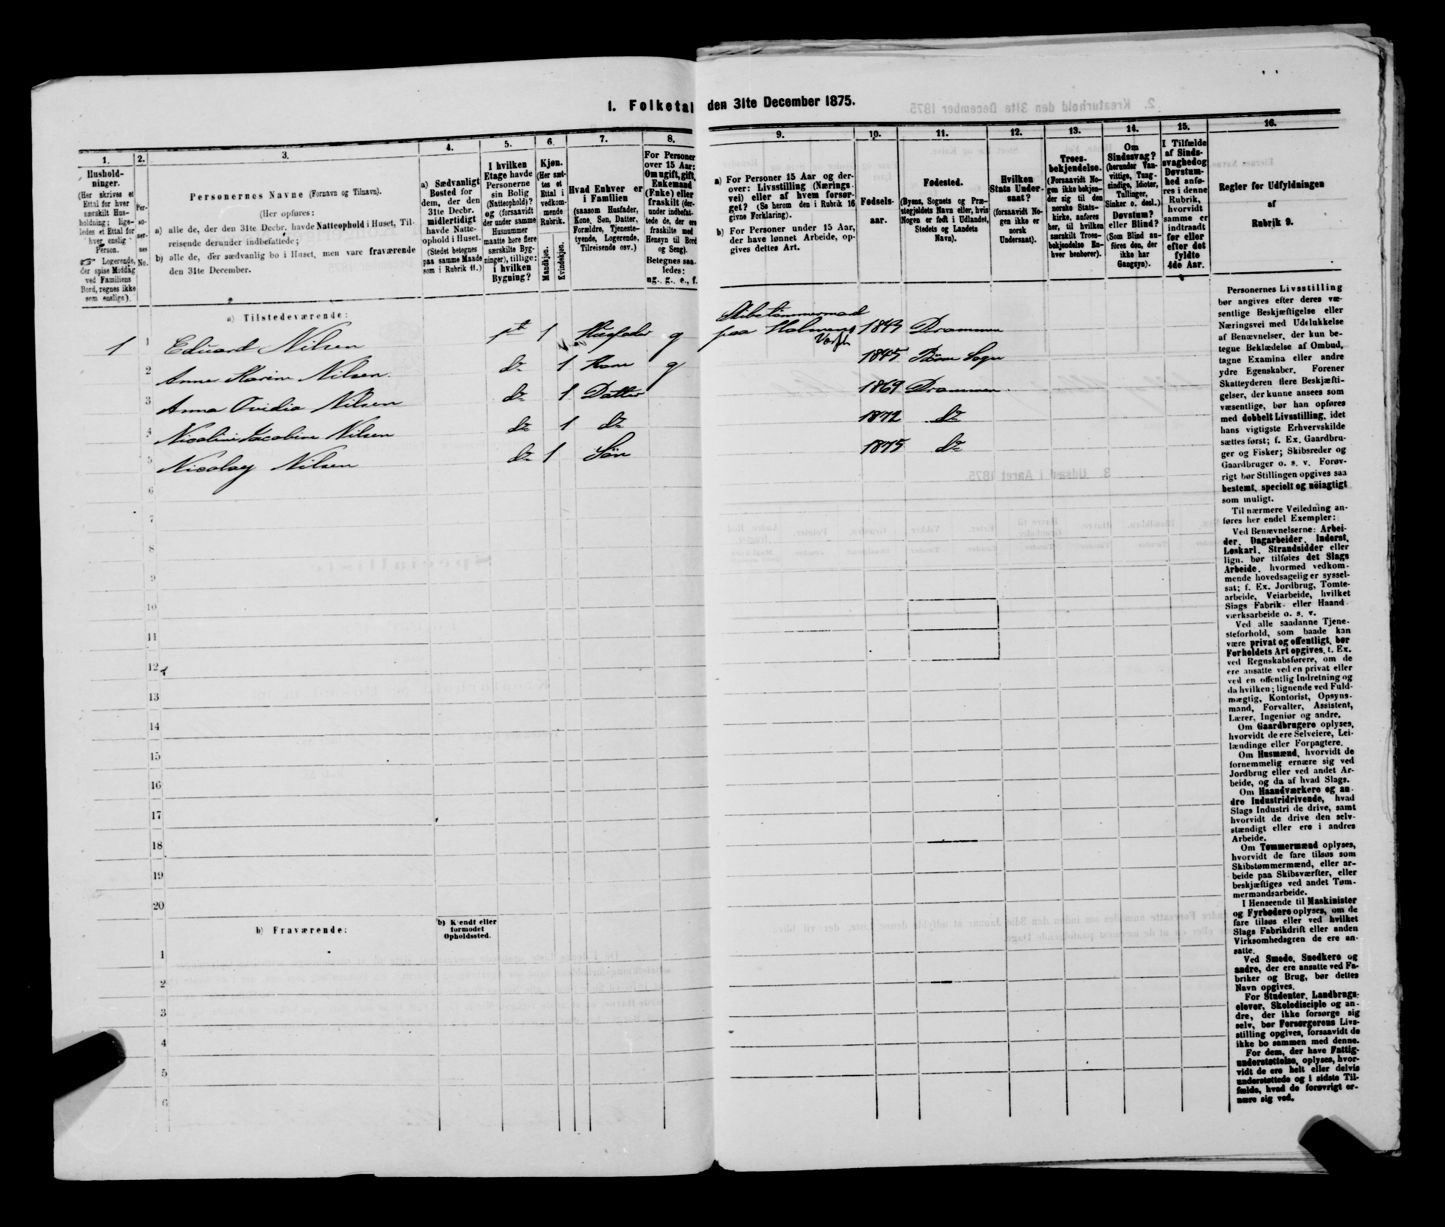 1. Folketal den 31te December 1875.
1.
Hushold-
ninger.
(Her skrives et
Ettal for hver
særskilt Hus-
holdning; lige-
ledes et Ettal for
hver enslig
Person.
☞ Logerende,
der spise Middag
ved Familiens
Bord, regnes ikke
som enslige).
2.
Per-
so-
ner-
nes
No.
3.
Personernes Navne (Fornavn og Tilnavn).
(Her opføres:
a) alle de, der den 31te Decbr. havde Natteophold i Huset, Til-
reisende derunder indbefattede;
b) alle de, der sædvanlig bo i Huset, men vare fraværende
den 31te December.
4.
a) Sædvanligt
Bosted for
dem, der den
31te Decbr.
midlertidigt
havde Natte-
ophold i Huset.
(Stedet betegnes
paa samme Maade
som i Rubrik 11.)
5.
I hvilken
Etage havde
Personerne
sin Bolig
(Natteophold)?
og (forsaavidt
der under samme
Husnummer
maatte høre flere
særskilte Byg-
ninger), tillige:
i hvilken
Bygning?
6.
Kjøn.
(Her sæt-
tes et
Ettal i
vedkom-
mende
Rubrik.
Mandkjøn.
Kvindekjøn.
7.
Hvad Enhver er
i Familien
(saasom Husfader,
Kone, Søn, Datter,
Forældre, Tjeneste-
tyende, Logerende,
Tilreisende osv.)
8.
For Personer
over 15 Aar:
Om ugift, gift,
Enkemand
(Enke) eller
fraskilt (der-
under indbefat-
tede de, der ere
fraskilte med
Hensyn til Bord
og Seng).
Betegnes saa-
ledes:
ug., g., e., f.
9.
a) For Personer 15 Aar og der-
over: Livsstilling (Nærings-
vei) eller af hvem forsør-
get? (Se herom den i Rubrik 16
givne Forklaring).
b) For Personer under 15 Aar,
der have lønnet Arbeide, op-
gives dettes Art.
10.
Fødsels-
aar.
11.
Fødested.
(Byens, Sognets og Præ-
stegjeldets Navn eller, hvis
Nogen er født i Udlandet,
Stedets og Landets
Navn).
12.
Hvilken
Stats Under-
saat?
(forsaavidt No-
gen ikke er
norsk
Undersaat).
13.
Troes-
bekjendelse.
(Forsaavidt No-
gen ikke bekjen-
der sig til den
norske Stats-
kirke, anføres
her, til hvilken
særskilt Troes-
bekjendelse En-
hver henhører).
14.
Om
Sindssvag?
(herunder Van-
vittige, Tung-
sindige, Idioter,
Tullinger,
Sinker o. desl.)
Døvstum?
eller Blind?
(Som Blind an-
føres den, der
ikke har
Gangsyn).
15.
I Tilfælde
af Sinds-
svaghed og
Døvstum-
hed anfø-
res i denne
Rubrik,
hvorvidt
samme er
indtraadt
før eller
efter det
fyldte
4de Aar.
16.
Regler for Udfyldningen
af
Rubrik 9.
a) Tilstedeværende:
1 1 Eduard Nilsen 1st 1 Husfader g Skibstømmermad
paa Holmens Værft 1843 Drammen
2 Anne Karine Nilsen. do 1 Kone g 1845 Sogn
3 Anna Ovidia Nilsen do 1 Datter 1869 Drammen
4 Nicoline Jacobine Nilsen do 1 do 1872 do
5 Nicolay Nilsen do 1 Søn 1875 do
6
7
8
9
10
11
12
13
14
15
16
17
18
19
20
b) Fraværende:
b) Kjendt eller
formodet
Opholdssted.
1
2
3
4
5
6
Personernes Livsstilling
bør angives efter deres væ-
sentlige Beskjæftigelse eller
Næringsvei med Udelukkelse
af Benævnelser, der kun be-
tegne Beklædelse af Ombud,
tagne Examina eller andre
ydre Egenskaber. Forener
Skatteyderen flere Beskjæfti-
gelser, der kunne ansees som
væsentlige, bør han opføres
med dobbelt Livsstilling, idet
hans vigtigste Erhvervskilde
sættes først; f. Ex. Gaardbru-
ger og Fisker; Skibsreder og
Gaardbruger o. s. v. Forøv-
rigt bør Stillingen opgives saa
bestemt, specielt og nøiagtigt
som muligt.
Til nærmere Veiledning an-
føres her endel Exempler:
Ved Benævnelserne: Arbei-
der, Dagarbeider, Inderst,
Løskarl, Strandsidder eller
lign. bør tilføies det Slags
Arbeide, hvormed vedkom-
mende hovedsagelig er syssel-
sat; f. Ex. Jordbrug, Tomte-
arbeide, Veiarbeide, hvilket
Slags Fabrik- eller Haand-
værksarbeide o. s. v.
Ved alle saadanne Tjene-
steforhold, som baade kan
være privat og offentligt, bør
Forholdets Art opgives, f. Ex.
ved Regnskabsførere, om de
ere ansatte ved en privat eller
ved en offentlig Indretning og
da hvilken; lignende ved Fuld-
mægtig, Kontorist, Opsyns-
mand, Forvalter, Assistent,
Lærer, Ingeniør og andre.
Om Gaardbrugere oplyses,
hvorvidt de ere Selveiere, Lei-
lændinge eller Forpagtere.
Om Husmænd, hvorvidt de
fornemmelig ernære sig ved
Jordbrug eller ved andet Ar-
beide, og da af hvad Slags.
Om Haandværkere og an-
dre Industridrivende, hvad
Slags Industri de drive, samt
hvorvidt de drive den selv-
stændigt eller ere i andres
Arbeide.
Om Tømmermænd oplyses,
hvorvidt de fare tilsøs som
Skibstømmermænd, eller ar-
beide paa Skibsværfter, eller
beskjæftiges ved andet Tøm-
mermandsarbeide.
I Henseende til Maskinister
og Fyrbødere oplyses, om de
fare tilsøs eller ved hvilket
Slags Fabrikdrift eller anden
Virksomhedsgren de ere an-
satte.
Ved Smede, Snedkere og
andre, der ere ansatte ved Fa-
briker og Brug, bør dettes
Navn opgives.
For Studenter, Landbrugs-
elever, Skoledisciple og an-
dre, der ikke forsørge sig
selv, bør Forsørgerens Livs-
stilling opgives, forsaavidt de
ikke bo sammen med denne.
For dem, der have Fattig-
understøttelse, oplyses, hvor-
vidt de ere helt eller delvis
understøttede og i sidste Til-
fælde, hvad de forøvrigt er-
nære sig ved.